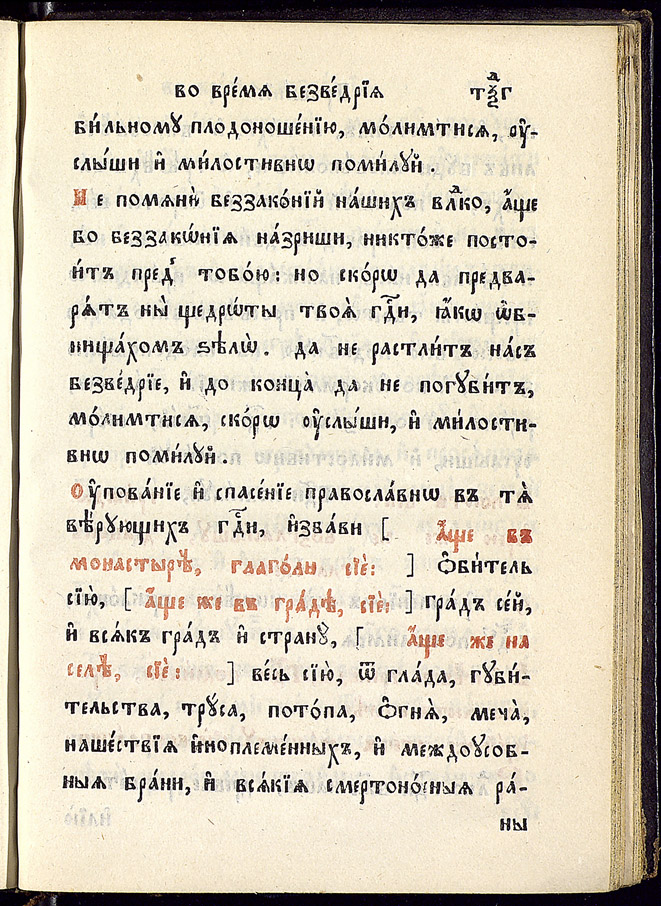 во вре́мѧ безве́дрїѧ тч҃г л
би́льномꙋ плодоноше́нїю, мо́лимтисѧ, ᲂу҆-
слы́ши и҆ ми́лостивнѡ поми́лꙋй .
Не помѧнѝ беззако́нїй на́шихъ влⷣко, а҆́ще
бо беззакѡ́нїѧ на́зриши, никто́же посто-
и́тъ пред̾ тобо́ю: но ско́рѡ да предва-
рѧ́тъ ны̀ щедрѡ́ты твоѧ̀ гдⷭ҇и, ꙗ҆́кѡ ѡ҆б-
нища́хомъ ѕѣлѡ̀. да не растли́тъ на́съ
безве́дрїе, и҆ до конца̀ да не погꙋби́тъ,
мо́лимтисѧ, ско́рѡ ᲂу҆слы́ши, и҆ ми́лости-
внѡ поми́лꙋй .
Оу҆пова́нїе и҆ спасе́нїе правосла́внѡ въ тѧ̀
вѣ́рꙋющихъ гдⷭ҇и, и҆зба́ви [ а҆́ще въ
монастырѣ̀, глаго́ли сїѐ: ] ѻ҆би́тель
сїю̀, [ а҆́ще же въ гра́дѣ, сїѐ: ] гра́дъ се́й,
и҆ всѧ́къ гра́дъ и҆ странꙋ̀, [ а҆́ще же на
селѣ̀, сїѐ: ] весь сїю̀, ѿ гла́да, гꙋби́-
тельства, трꙋ́са, пото́па, ѻ҆гнѧ̀, меча̀,
наше́ствїѧ и҆ноплеме́нныхъ, и҆ междоꙋсо́б-
ныѧ бра́ни, и҆ всѧ́кїѧ смертоно́сныѧ ра́-
ны